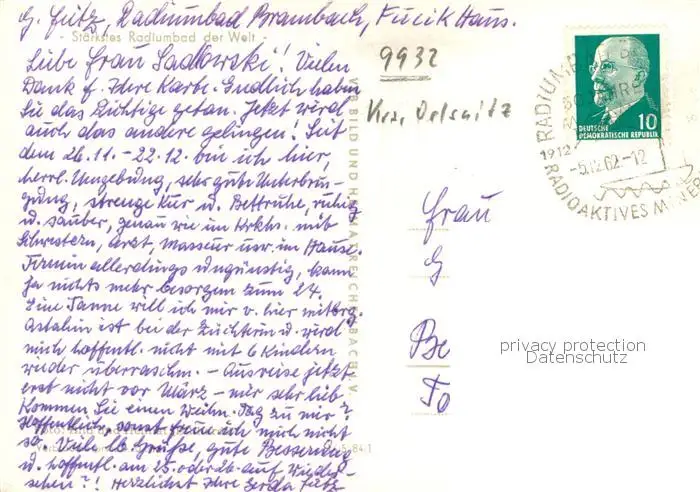 G. Fritz, Radiumbad Brambach, Fucik Haus.
- Stärkstes Radiumbad der Welt -
Liebe Frau Sadkowski! Vielen
Dank f. Ihre Karte. Endlich haben
Sie das Richtige getan. Jetzt wird
auch das andere gelingen! Seit
dem 26.11. - 22.12. bin ich hier,
herrl. Umgebung, sehr gute Unterbrin-
gung, strenge Kur u. Bettruhe, ruhig
u. sauber, genau wie im Krkhs. mit
Schwestern, Arzt, Masseur usw. im Hause.
Termin allerdings ungünstig, kann
ja nichts mehr besorgen zum 24.
Eine Tanne will ich mir v. hier mitbrg.
ist bei der Züchterin u. wird
mich hoffentl. nicht mit 6 Kindern
wieder überraschen. - Ausreise jetzt
erst nicht vor März - mir sehr lieb
Kommen Sie einen Weihn. Tag zu mir?
Hoffentlich, sonst freue ich mich nicht
so. Viele lb Grüße, gute Besserung
u. hoffentl. am 25. oder 26. auf Wieder-
sehen?! Herzlichst Ihre Gerda Fritz
9932
Krs. Oelsnitz
DEUTSCHE
DEMOKRATISCHE REPUBLIK
10
RADIUMBAD
50 JAHRE
1912
-5.12.62.-12
RADIOAKTIVES
Frau
G
Be
To
privacy protection
Datenschutz